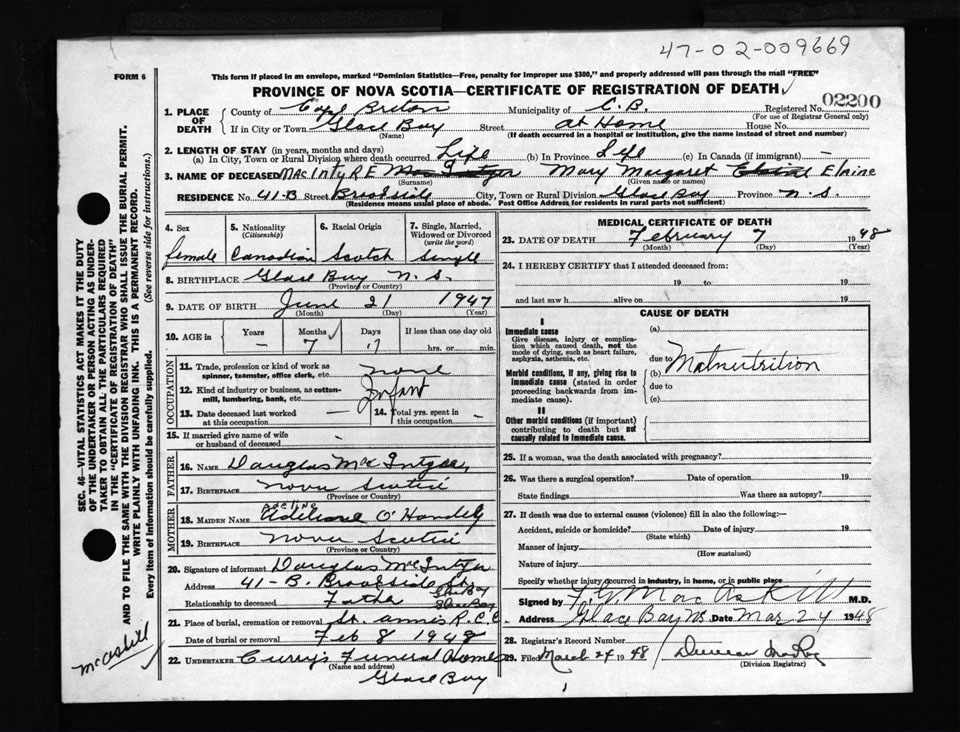 47-02-009669
FORM 6
This form if placed in an envelope, marked "Dominion Statistics—Free, penalty for improper use $300," and properly addressed will pass through the mail "FREE"
PROVINCE OF NOVA SCOTIA—CERTIFICATE OF REGISTRATION OF DEATH
1. PLACE OF DEATH County of Cape Breton Municipality of C.B. Registered No. 02200
(For use of Registrar General only)
If in City or Town Glace Bay Street At Home House No.
(Name) (If death occurred in a hospital or institution, give the name instead of street and number)
2. LENGTH OF STAY (in years, months and days)
(a) In City, Town or Rural Division where death occurred Life (b) In Province Life (c) In Canada (if immigrant) —
3. NAME OF DECEASED MACINTYRE Mary Margaret Elaine
(Surname) (Given name or names)
RESIDENCE No. 41-B Street Brookside City, Town or Rural Division Glace Bay Province N.S.
(Residence means usual place of abode. Post Office Address for residents in rural parts not sufficient)
4. Sex 5. Nationality (Citizenship) 6. Racial Origin 7. Single, Married, Widowed or Divorced (write the word)
female Canadian Scotch Single
8. BIRTHPLACE Glace Bay N.S.
(Province or Country)
9. DATE OF BIRTH June 21 1947
(Month) (Day) (Year)
10. AGE in Years Months Days If less than one day old
— 7 17 hrs. or min.
OCCUPATION
11. Trade, profession or kind of work as spinner, teamster, office clerk, etc. none
12. Kind of industry or business, as cotton-mill, lumbering, bank, etc. Infant
13. Date deceased last worked at this occupation —
14. Total yrs. spent in this occupation —
15. If married give name of wife or husband of deceased —
FATHER
16. NAME Douglas MacIntyre
17. BIRTHPLACE Nova Scotia
(Province or Country)
MOTHER
18. MAIDEN NAME O'Handley
19. BIRTHPLACE Nova Scotia
(Province or Country)
20. Signature of informant Douglas McIntyre
Address 41-B. Brookside St. Glace Bay
Relationship to deceased Father Glace Bay
21. Place of burial, cremation or removal St. Annis R.C.C
Date of burial or removal Feb 8 1948
22. UNDERTAKER Curry's Funeral Home
(Name and address)
Glace Bay
MEDICAL CERTIFICATE OF DEATH
23. DATE OF DEATH February 7 1948
(Month) (Day) (Year)
24. I HEREBY CERTIFY that I attended deceased from:
19 to 19
and last saw h alive on 19
CAUSE OF DEATH
I
Immediate cause
Give disease, injury or complication which caused death, not the mode of dying, such as heart failure, asphyxia, asthenia, etc.
(a)
due to
Morbid conditions, if any, giving rise to immediate cause (stated in order proceeding backwards from immediate cause).
(b) Malnutrition
due to
(c)
II
Other morbid conditions (if important) contributing to death but not causally related to immediate cause.
25. If a woman, was the death associated with pregnancy?
26. Was there a surgical operation? Date of operation 19
State findings Was there an autopsy?
27. If death was due to external causes (violence) fill in also the following:—
Accident, suicide or homicide? Date of injury 19
(State which)
Manner of injury
(How sustained)
Nature of injury
Specify whether injury occurred in industry, in home, or in public place
Signed by F.G. MacAskill M.D.
Address Glace Bay NS Date Mar 24 1948
28. Registrar's Record Number
29. Filed March 24 1948 Duncan
(Division Registrar)
SEC. 46—VITAL STATISTICS ACT MAKES IT THE DUTY
OF THE UNDERTAKER OR PERSON ACTING AS UNDER-
TAKER TO OBTAIN ALL THE PARTICULARS REQUIRED
IN THE "CERTIFICATE OF REGISTRATION OF DEATH"
AND TO FILE THE SAME WITH THE DIVISION REGISTRAR WHO SHALL ISSUE THE BURIAL PERMIT.
WRITE PLAINLY WITH UNFADING INK. THIS IS A PERMANENT RECORD.
Every item of information should be carefully supplied. (See reverse side for instructions.)
McAskill